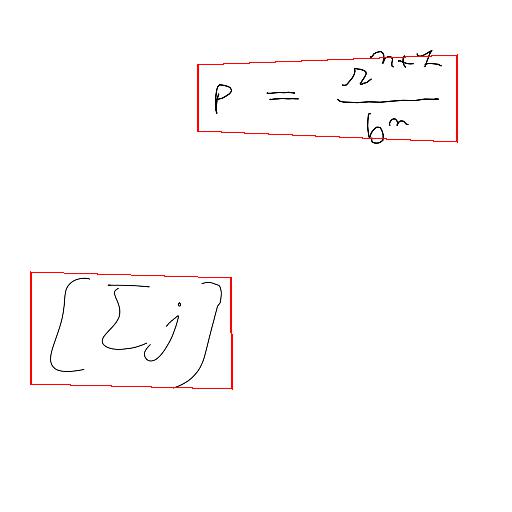 P = \frac{r^{n+1}}{b^n}
[\Sigma j]